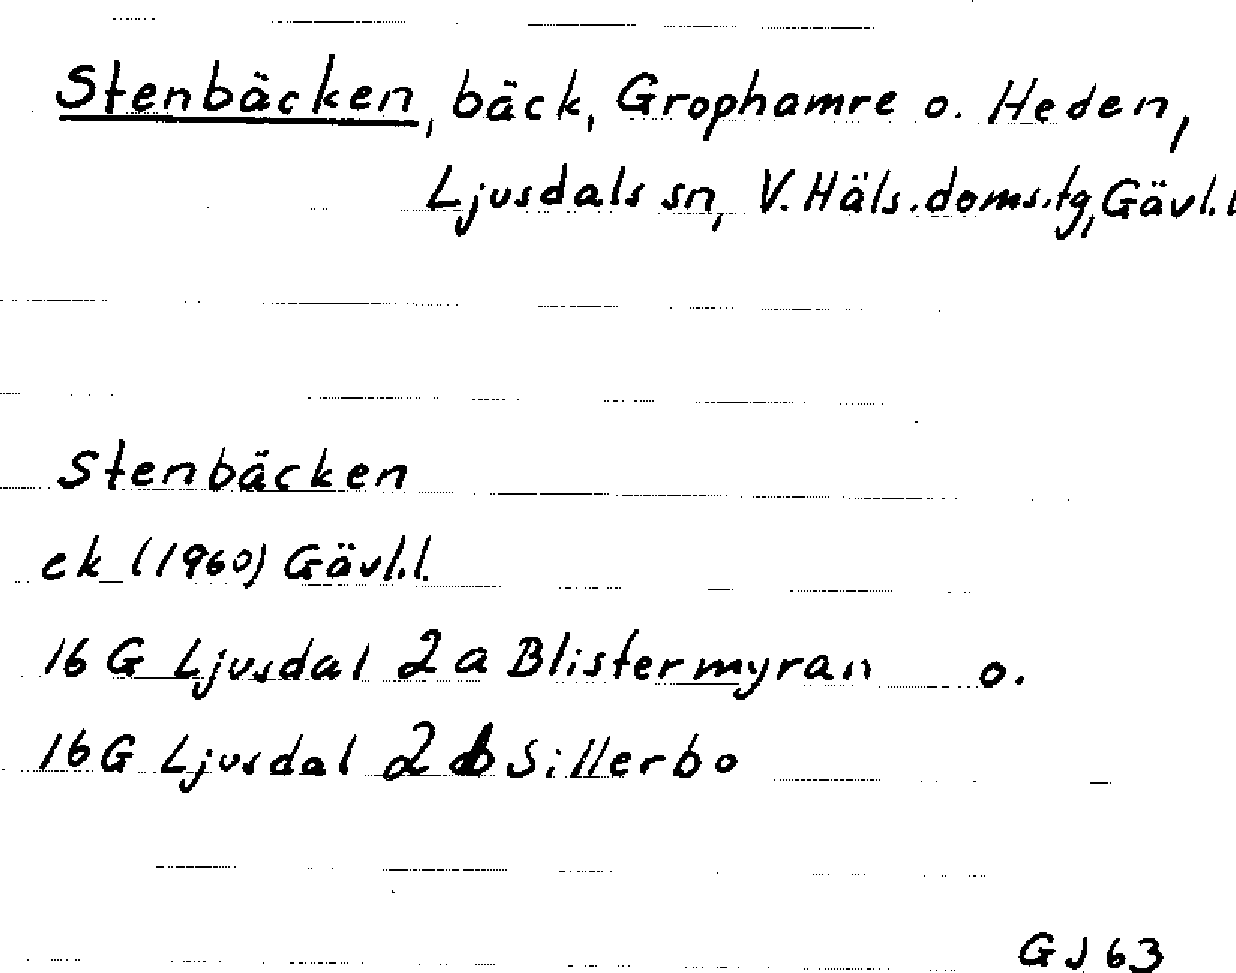 Stenbäcken, bäck, Grophamre o. Heden,
Ljusdals sn, V. Häls. doms.tg, Gävl.l
Stenbäcken
ek (1960) Gävl.l.
16 G Ljusdal 2 a Blistermyran o.
16 G Ljusdal 2 b Sillerbo
GJ 63